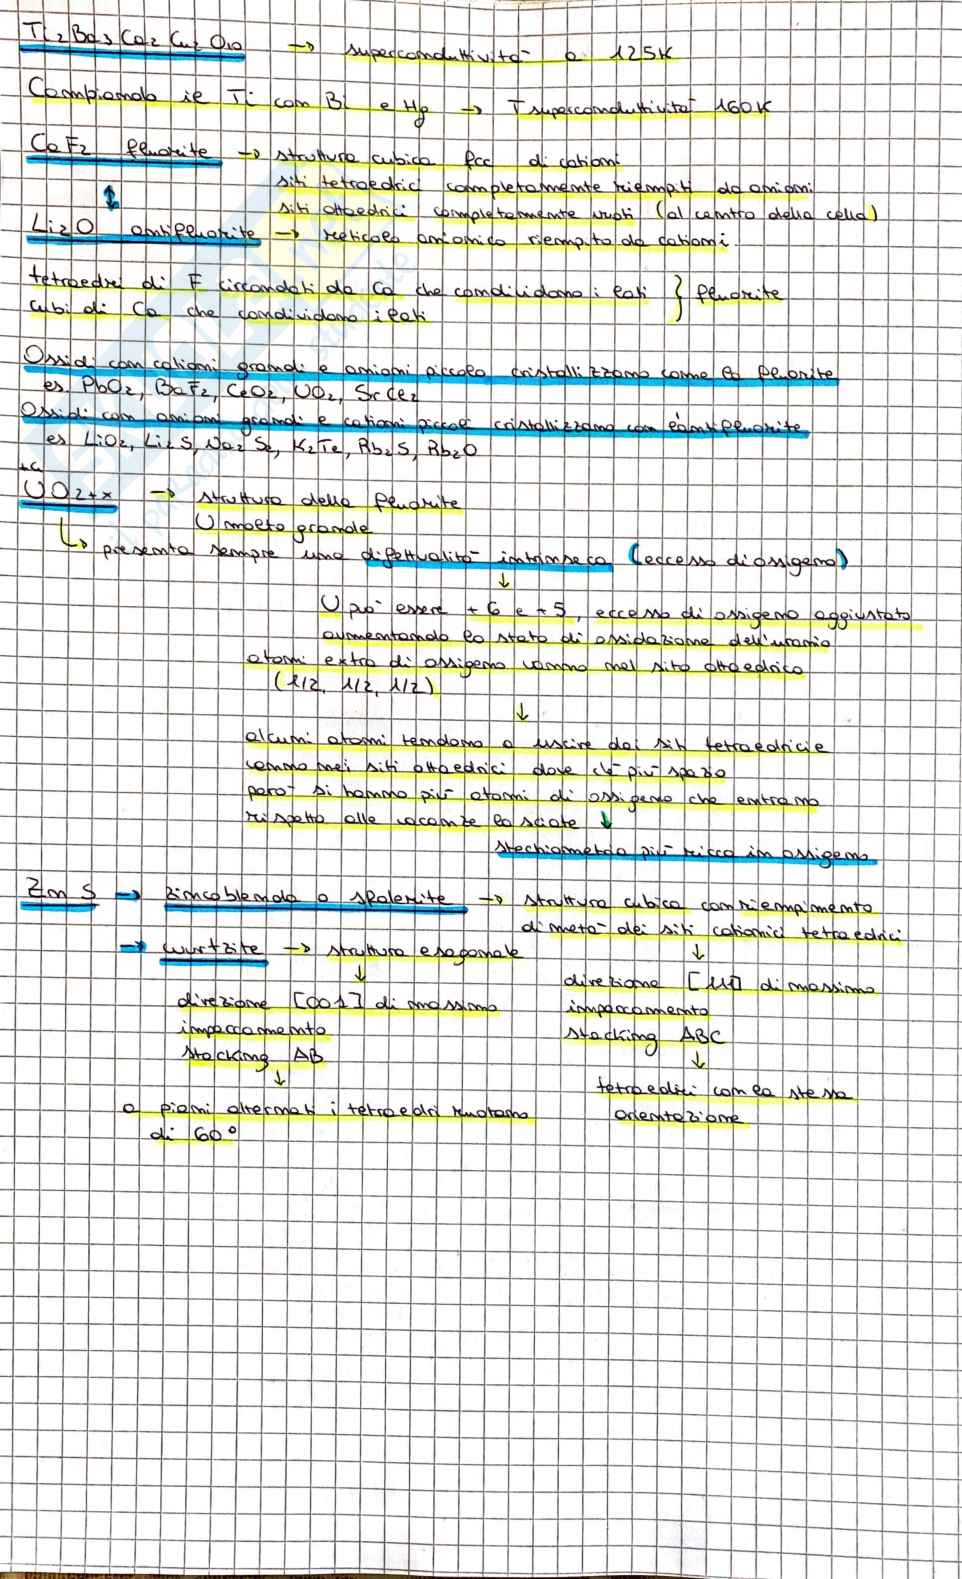 Ti₂Ba₃Ca₂Cu₂O₁₀ → superconduttività a 125K
Cambiando il Ti con Bi e Hg → Tsuperconduttività 160K
CaF₂ fluorite → struttura cubica fcc di cationi
siti tetraedrici completamente riempiti da anioni
siti ottaedrici completamente vuoti (al centro della cella)
Li₂O antifluorite → reticolo anionico riempito da cationi
tetraedri di F circondati da Ca che condividono i lati } fluorite
cubi di Ca che condividono i lati
Ossidi con cationi grandi e anioni piccoli cristallizzano come la fluorite
es PbO₂, BaF₂, CeO₂, UO₂, SrCl₂
Ossidi con anioni grandi e cationi piccoli cristallizzano con l'antifluorite
es LiO₂, Li₂S, Na₂Se, K₂Te, Rb₂S, Rb₂O
+4
UO₂₊ₓ → struttura della fluorite
U molto grande
↳ presenta sempre una difettualità intrinseca (eccesso di ossigeno)
↓
U può essere +6 e +5, eccesso di ossigeno aggiustato
aumentando lo stato di ossidazione dell'uranio
atomi extra di ossigeno vanno nel sito ottaedrico
(1/2, 1/2, 1/2)
↓
alcuni atomi tendono a uscire dai siti tetraedrici e
vanno nei siti ottaedrici dove c'è più spazio
però si hanno più atomi di ossigeno che entrano
rispetto alle vacanze lasciate ↓
stechiometria più ricca in ossigeno
ZnS → zincoblenda o sfalerite → struttura cubica con riempimento
di metà dei siti cationici tetraedrici
→ wurtzite → struttura esagonale ↓
↓ direzione [111] di massimo
direzione [001] di massimo impaccamento
impaccamento stacking ABC
stacking AB ↓
↓ tetraedri con la stessa
a piani alternati i tetraedri ruotano orientazione
di 60°